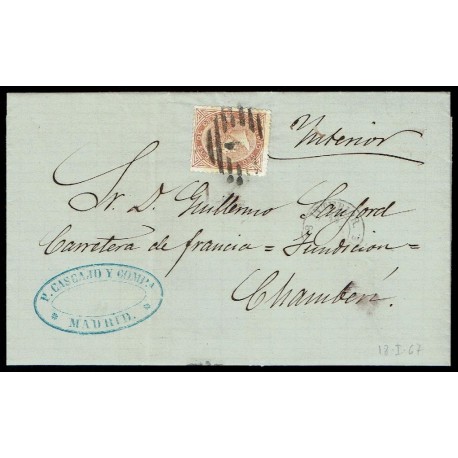 Interior
Sr. D. Guillermo Sanford
Carretera de francia = Fundicion =
Chamberí.
P. CASCAJO Y COMPA
* MADRID. *
18-I-67